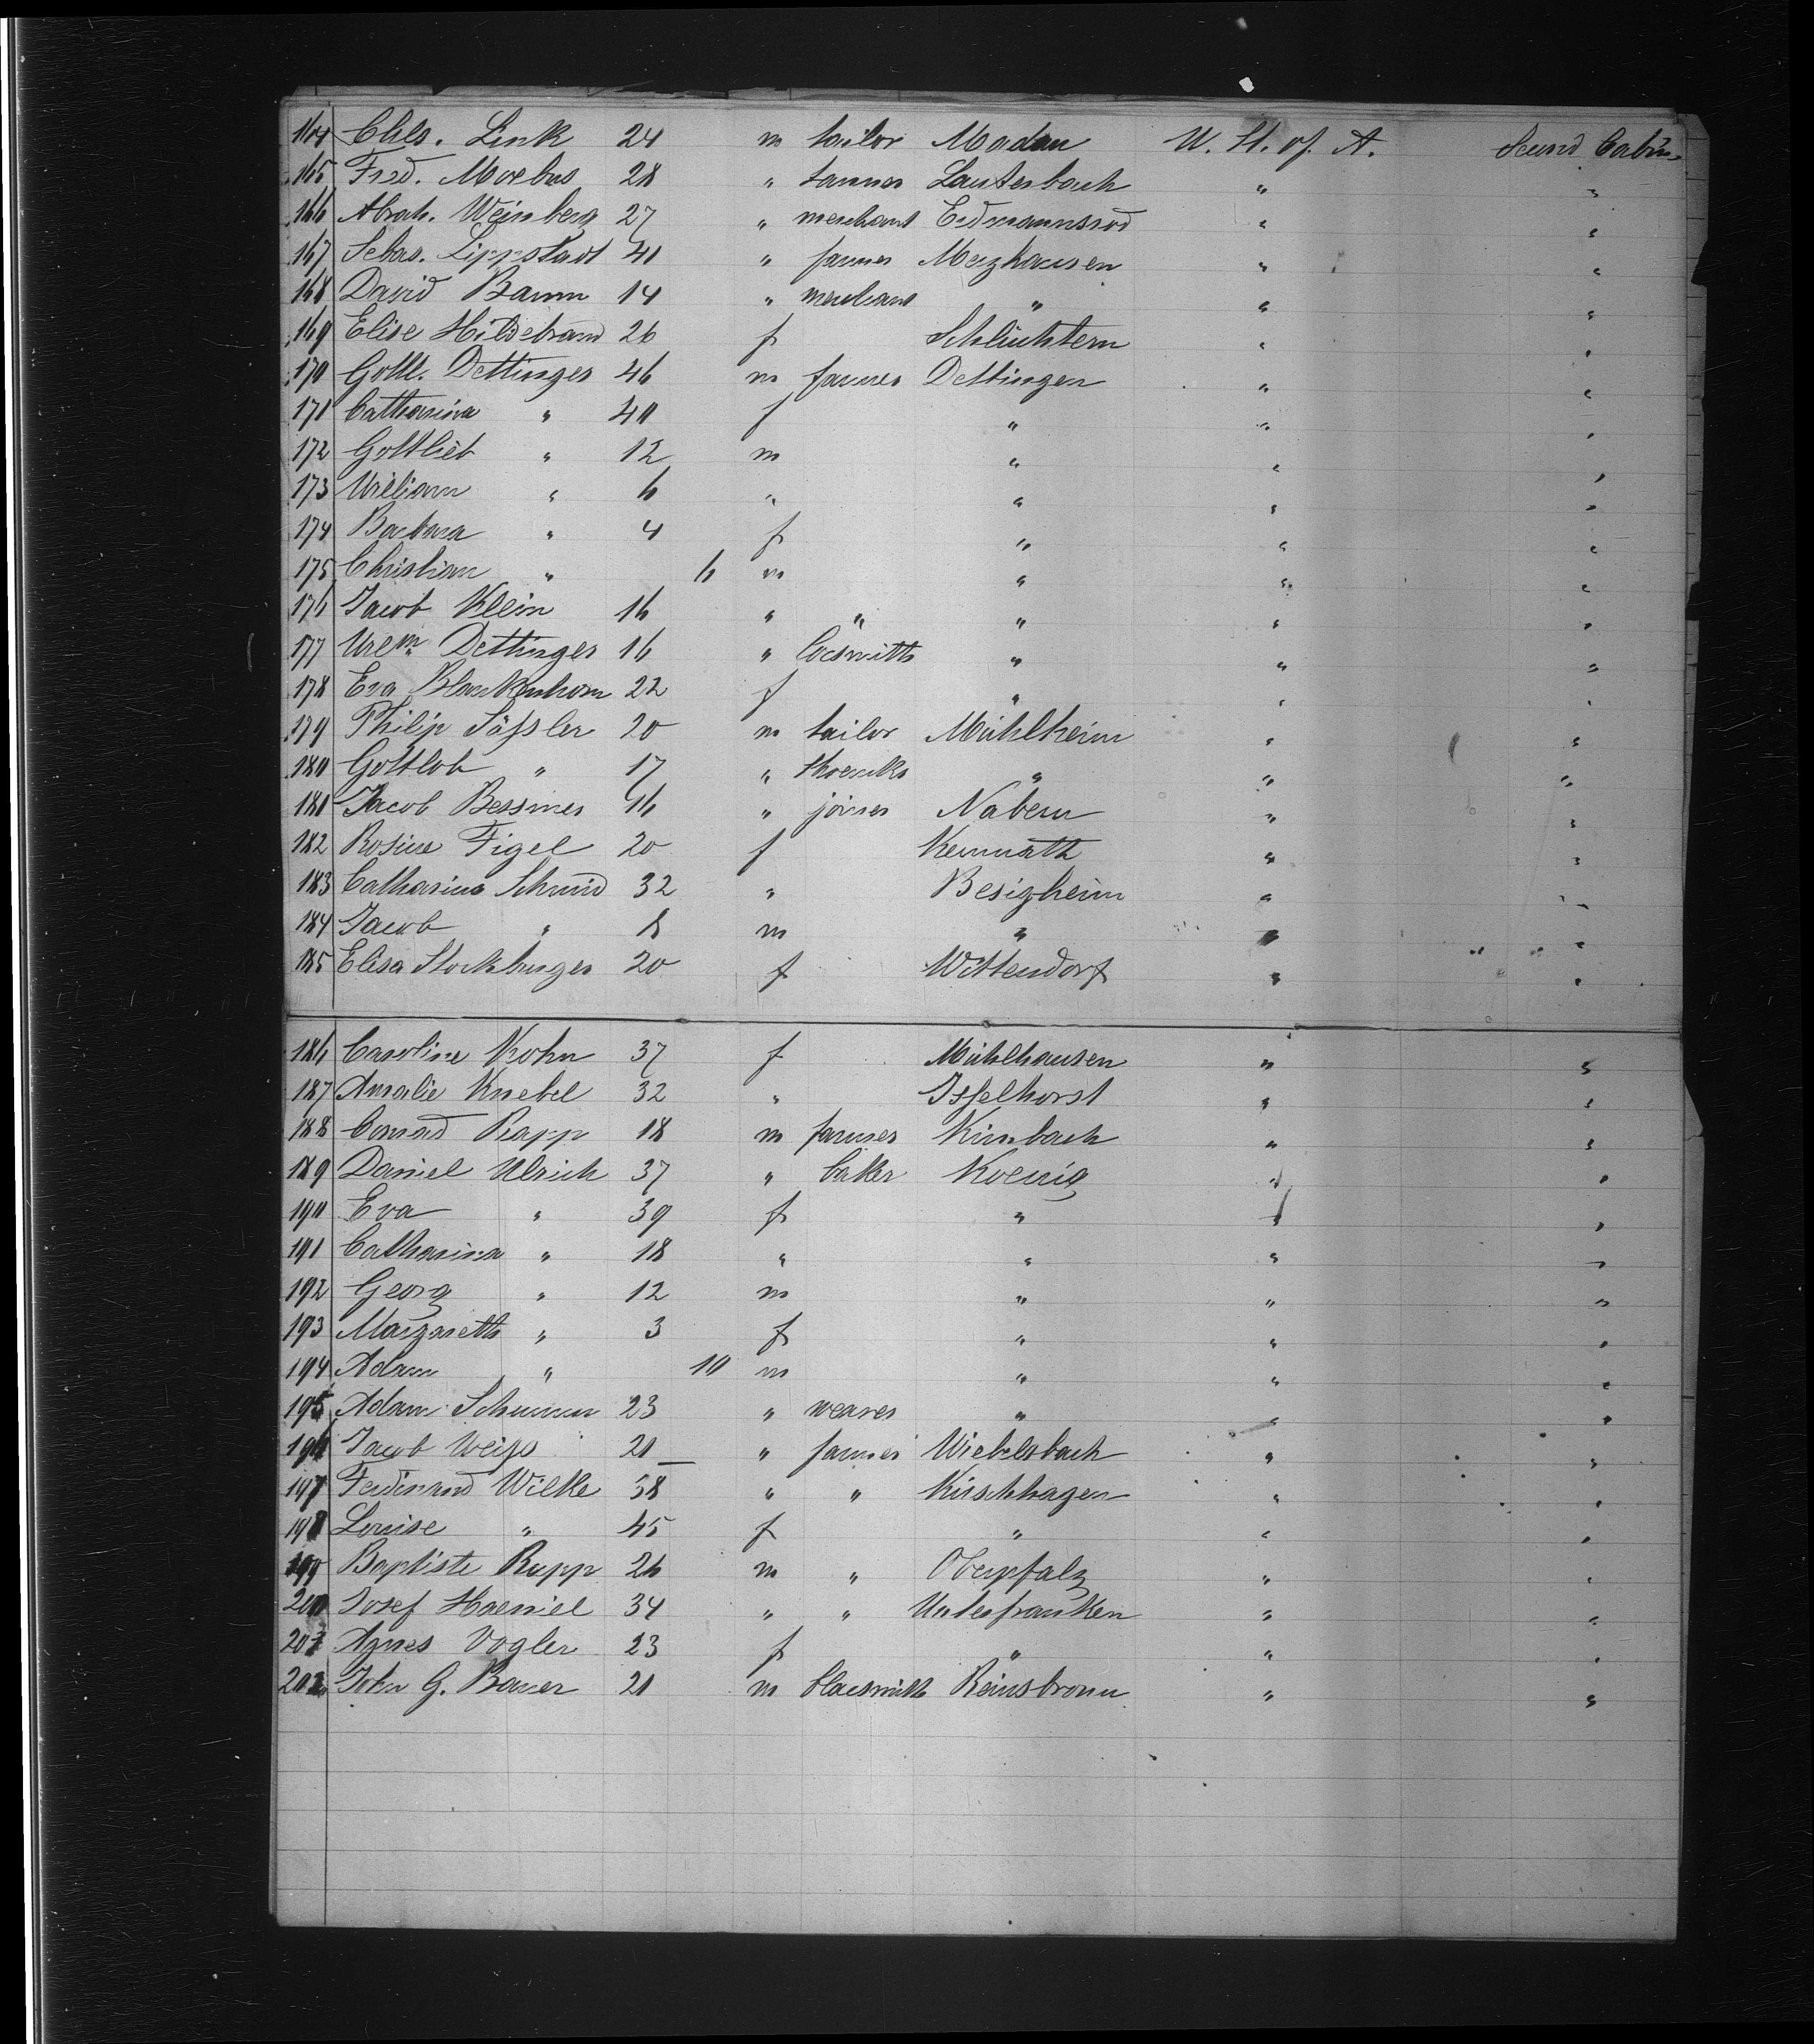 164 Chls. Link 24 m tailor Madan U. St. of. A. Second Cabin
165 Fred. Moebus 28 " tanner Lauterbach " "
166 Abrah. Weinberg 27 " merchant Erdmannsrod " "
167 Sebas. Lippstadt 41 " farmer Merzhausen " "
168 David Baum 14 " merchant " " "
169 Elise Hildebrand 26 f Schlüchtern " "
170 Gottl. Dettinger 46 m farmer Dettingen " "
171 Catharina " 40 f " " "
172 Gottlieb " 12 m " " "
173 William " 6 " " " "
174 Barbara " 4 f " " "
175 Christian " 6 m " " "
176 Jacob Klein 16 " " " " "
177 Wilm. Dettinger 16 " locsmith " " "
178 Eva Blankenhorn 22 f " " "
179 Philip Säfsler 20 m tailor Mühlheim " "
180 Gottlob " 17 " " " "
181 Jacob Bessmer 16 " joiner Nabern " "
182 Rosine Figel 20 f Kemnath " "
183 Catharina Schmid 32 " Besigheim " "
184 Jacob " 8 m " " "
185 Elisa Stockburger 20 f Wittendorf " "
186 Caroline Kohn 37 f Mühlhausen " "
187 Amalie Knebel 32 " Isselhorst " "
188 Conrad Rapp 18 m farmer Kirnbach " "
189 Daniel Ulrich 37 " baker Koenig " "
190 Eva " 39 f " " "
191 Catharina " 18 " " " "
192 Georg " 12 m " " "
193 Margareth " 3 f " " "
194 Adam " 10 m " " "
195 Adam 23 " weaver " " "
196 Jacob Weifs 21 " farmer Wiebelsbach " "
197 Ferdinand Wilke 58 " " Kirschhagen " "
198 Louise " 45 f " " "
199 Baptiste Rupp 26 m " Oberpfalz " "
200 Josef Haeniel 34 " " Unterfranken " "
201 Agnes Vogler 23 f " " "
202 John G. Bauer 21 m blacsmith Reinsbronn " "